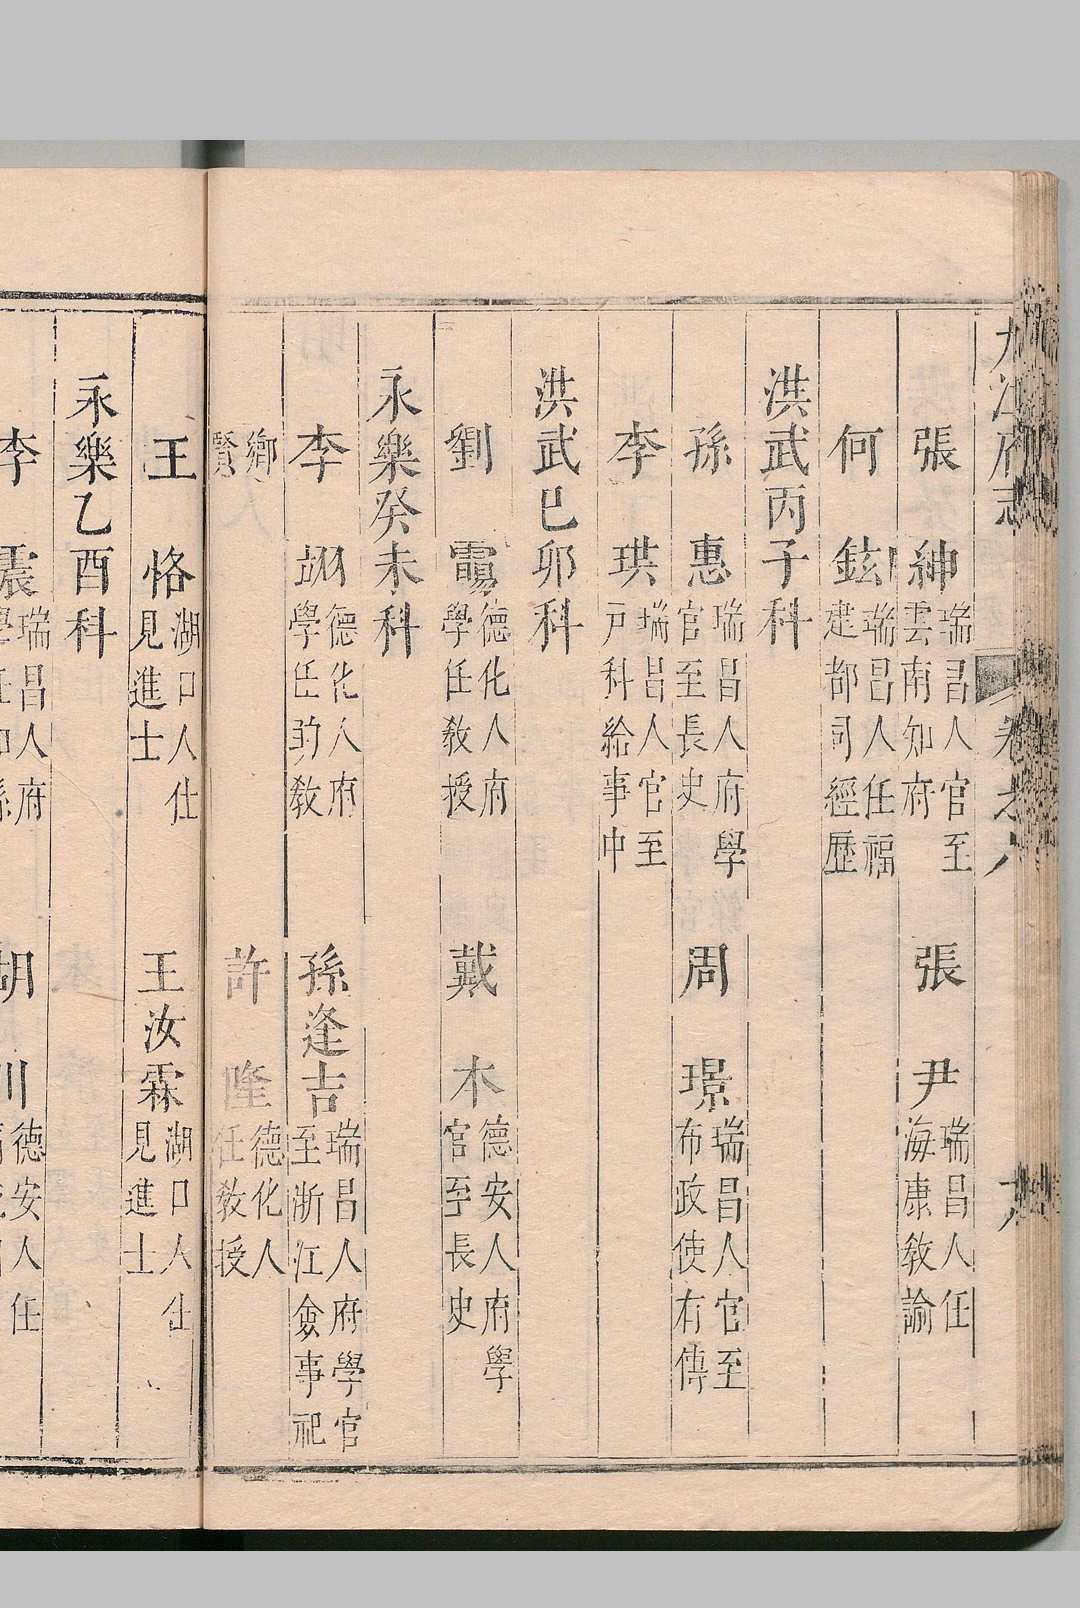 九江府志 卷之八
張紳 瑞昌人官至雲南知府 張尹 瑞昌人任海康敎諭
何鉉 瑞昌人任福建都司經歷
洪武丙子科
孫惠 瑞昌人府學官至長史 周璟 瑞昌人官至布政使有傳
李珙 瑞昌人官至戸科給事中
洪武巳卯科
劉 德化人府學任敎授 戴木 德安人府學官至長史
永樂癸未科
李 德化人府學任助敎 孫逢吉 瑞昌人府學官至浙江僉事祀
鄉賢 許隆 德化人任敎授
王恪 湖口人仕見進士 王汝霖 湖口人仕見進士
永樂乙酉科
李震 瑞昌人府學任知縣 胡 德安人任